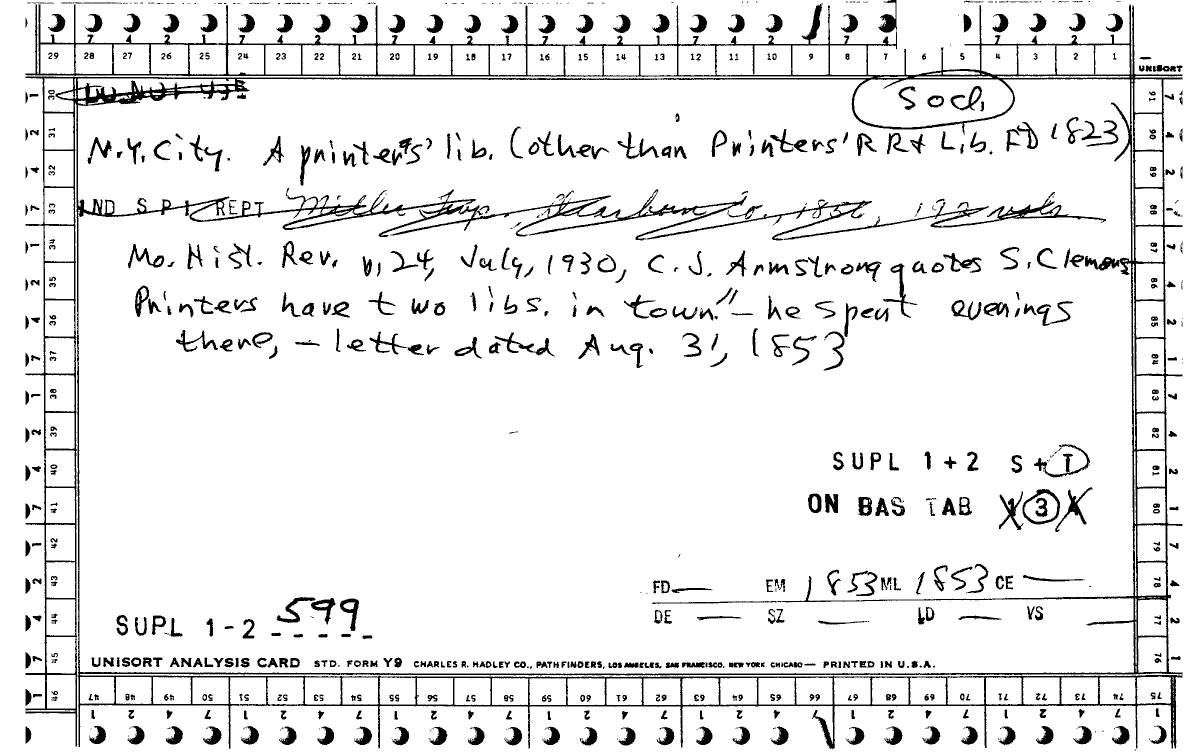 1 7 4 2 1 7 4 2 1 7 4 2 1 7 4 2 1 7 4 2 7 4 7 4 2 1
29 28 27 26 25 24 23 22 21 20 19 18 17 16 15 14 13 12 11 10 9 8 7 6 5 4 3 2 1
UNISORT
DO NOT USE
Socl.
N.Y. City. A printers' lib. (other than Printers' RR & Lib. FD 1823)
IND S P I REPT Miller Twp., Dearborn Co., 1856, 192 vols
Mo. Hist. Rev. v. 24, July, 1930, C. J. Armstrong quotes S. Clemens
Printers have two libs. in town" – he spent evenings
there, – letter dated Aug. 31, 1853
SUPL 1+2 S+T
ON BAS TAB 1 3 4
FD — EM 1853 ML 1853 CE —
DE — SZ — LD — VS —
SUPL 1-2 599
UNISORT ANALYSIS CARD STD. FORM Y9 CHARLES R. HADLEY CO., PATHFINDERS, LOS ANGELES, SAN FRANCISCO, NEW YORK CHICAGO — PRINTED IN U.S.A.
30 31 32 33 34 35 36 37 38 39 40 41 42 43 44 45 46
91 90 89 88 87 86 85 84 83 82 81 80 79 78 77 76 75
47 48 49 50 51 52 53 54 55 56 57 58 59 60 61 62 63 64 65 66 67 68 69 70 71 72 73 74
1 2 4 7 1 2 4 7 1 2 4 7 1 2 4 7 1 2 4 7 1 2 4 7 1 2 4 7